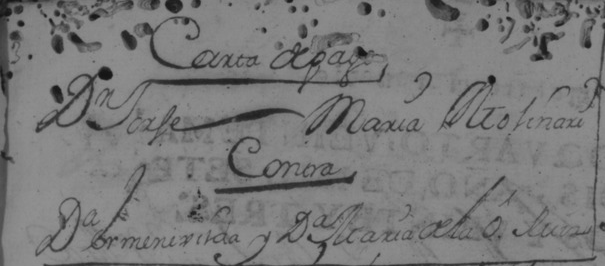 Carta de pago
Dn Jorse Maria Molinari
Contra
Da Ermenexilda y Da Maria de la O